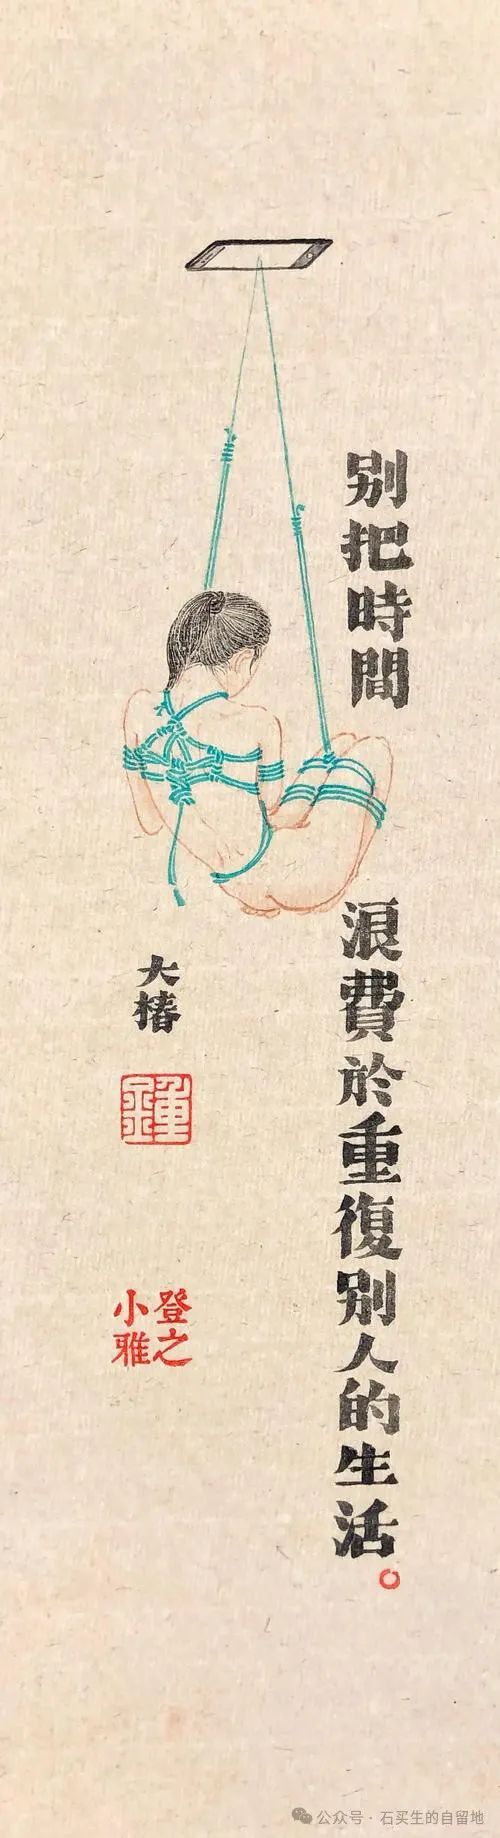 别把時間
浪費於重復别人的生活。
大椿
鍾
登之
小雅
公众号·石买生的自留地